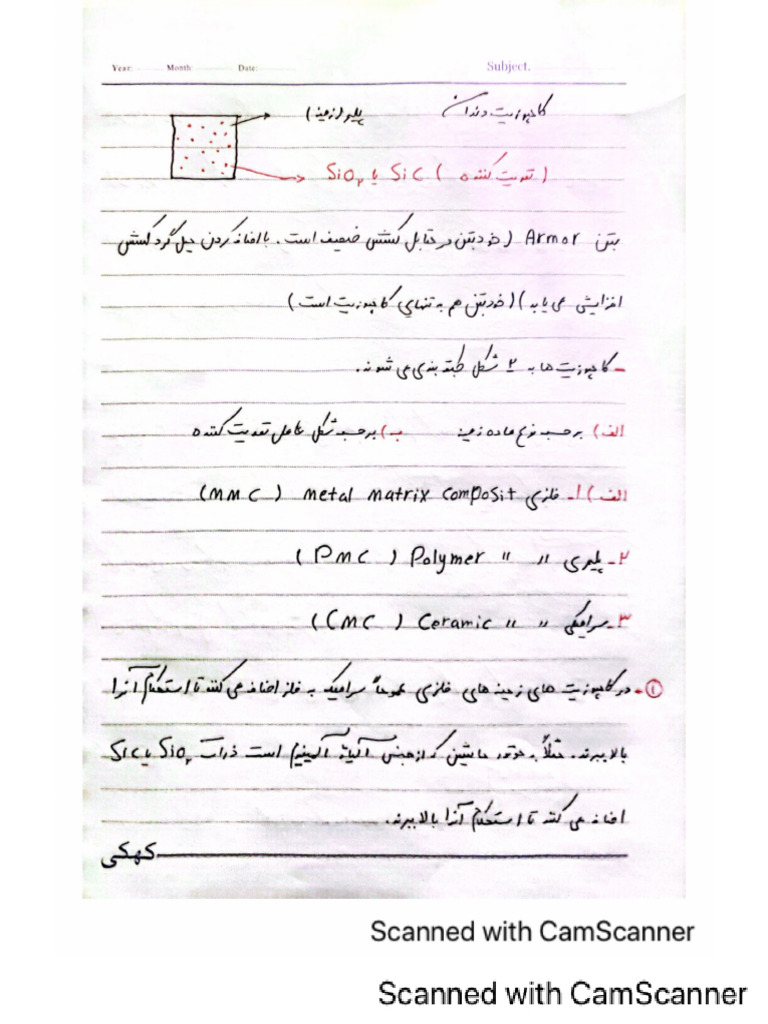 Year: Month: Date: Subject.
کامپوزیت دندان پلیمر (زمینه)
(تقویت کننده) SiC یا SiO₂
بتن Armor (خود بتن در مقابل کشش ضعیف است. با اضافه کردن میل گرد کشش
افزایش می یابد) (خود بتن هم به تنهایی کامپوزیت است)
- کامپوزیت ها به ۲ شکل طبقه بندی می شوند.
الف) بر حسب نوع ماده زمینه ب) بر حسب شکل عامل تقویت کننده
الف) ۱- فلزی metal matrix composit (MMC)
۲- پلیمری " " Polymer (PMC)
۳- سرامیکی " " Ceramic (CMC)
①- در کامپوزیت های زمینه های فلزی عموماً سرامیک به فلز اضافه می کنند تا استحکام آنرا
بالا ببرند. مثلاً به موتور ماشین که از جنس آلیاژ آلومینیم است ذرات SiO₂ یا SiC
اضافه می کنند تا استحکام آنرا بالا ببرند.
کهکی
Scanned with CamScanner
Scanned with CamScanner